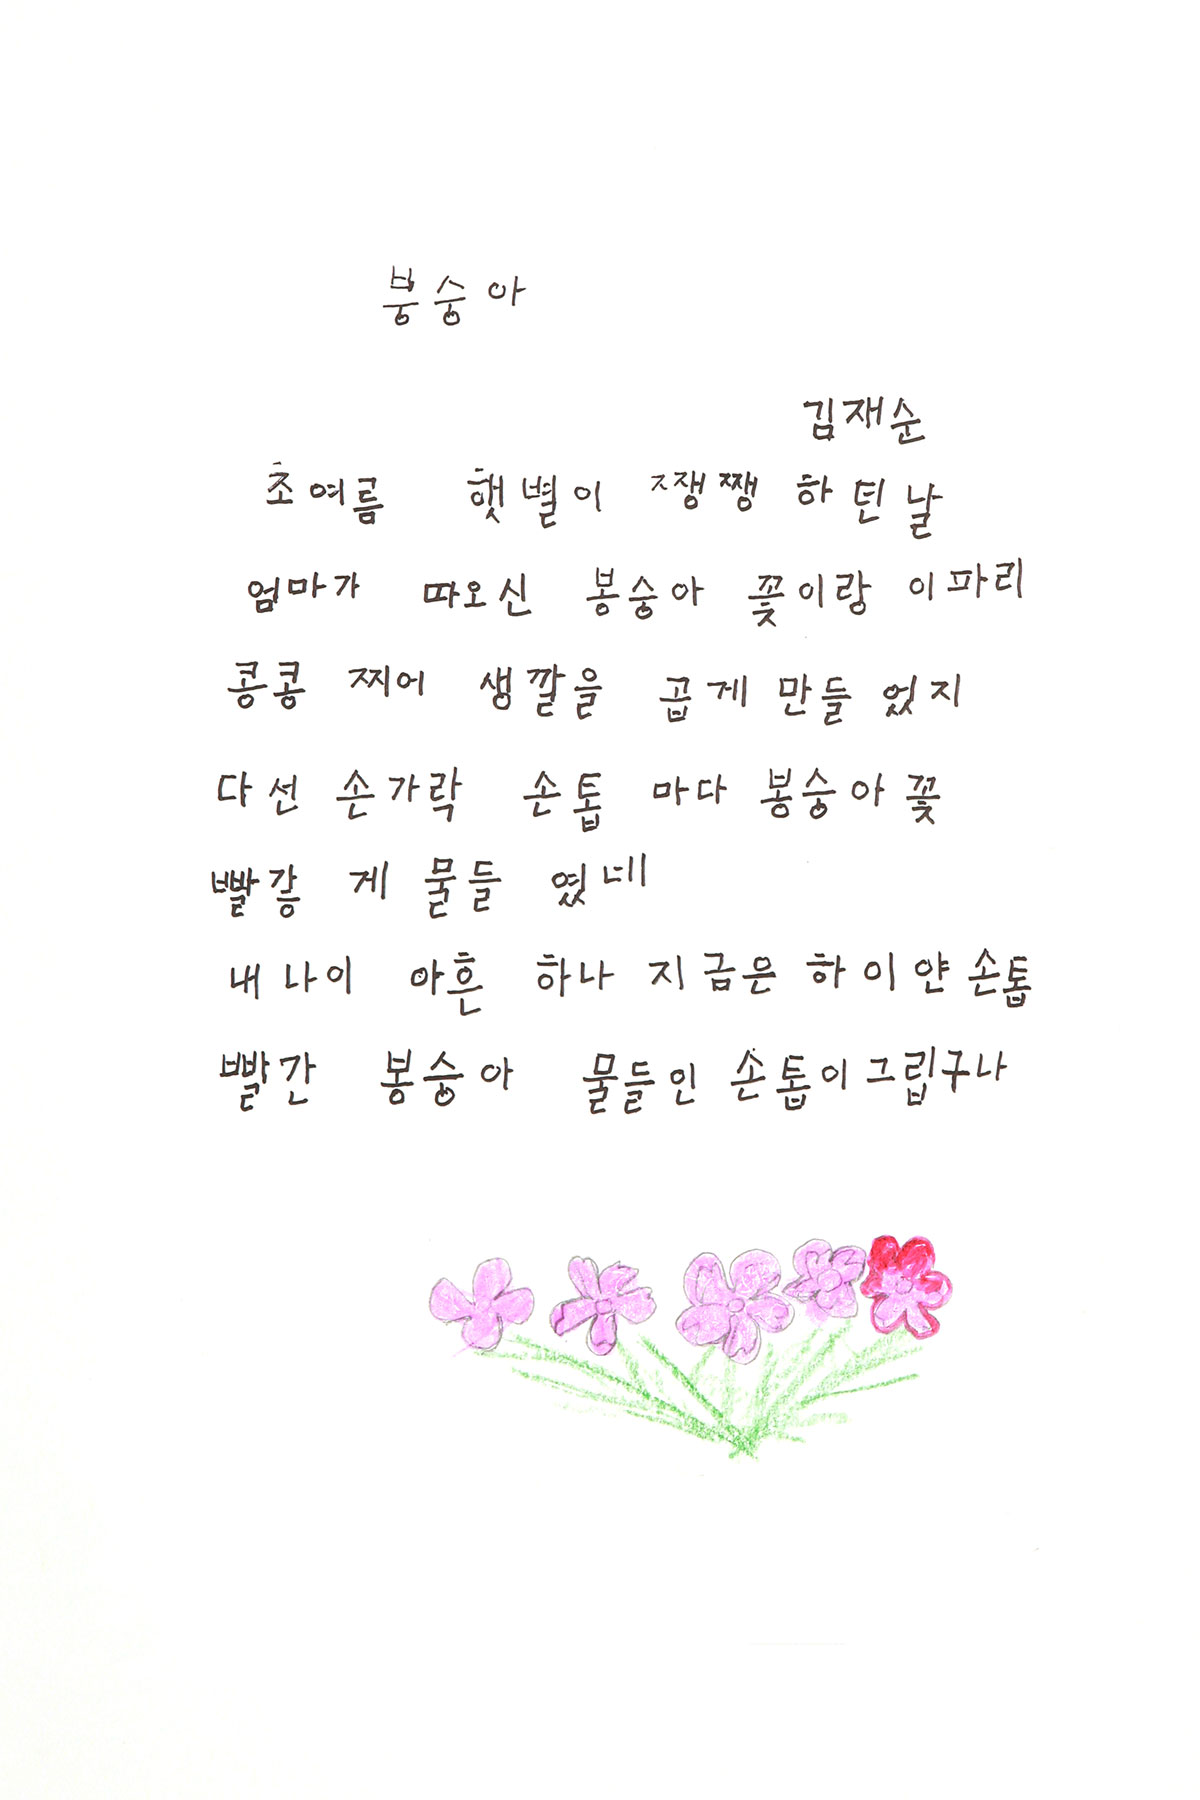 붕숭아
김재순
초여름 햇볕이 쨍쨍 하던 날
엄마가 따오신 봉숭아 꽃이랑 이파리
콩콩 찌어 생깔을 곱게 만들 었지
다선 손가락 손톱 마다 봉숭아 꽃
빨갛 게 물들 였네
내 나이 아흔 하나 지금은 하이얀 손톱
빨간 봉숭아 물들인 손톱이 그립구나